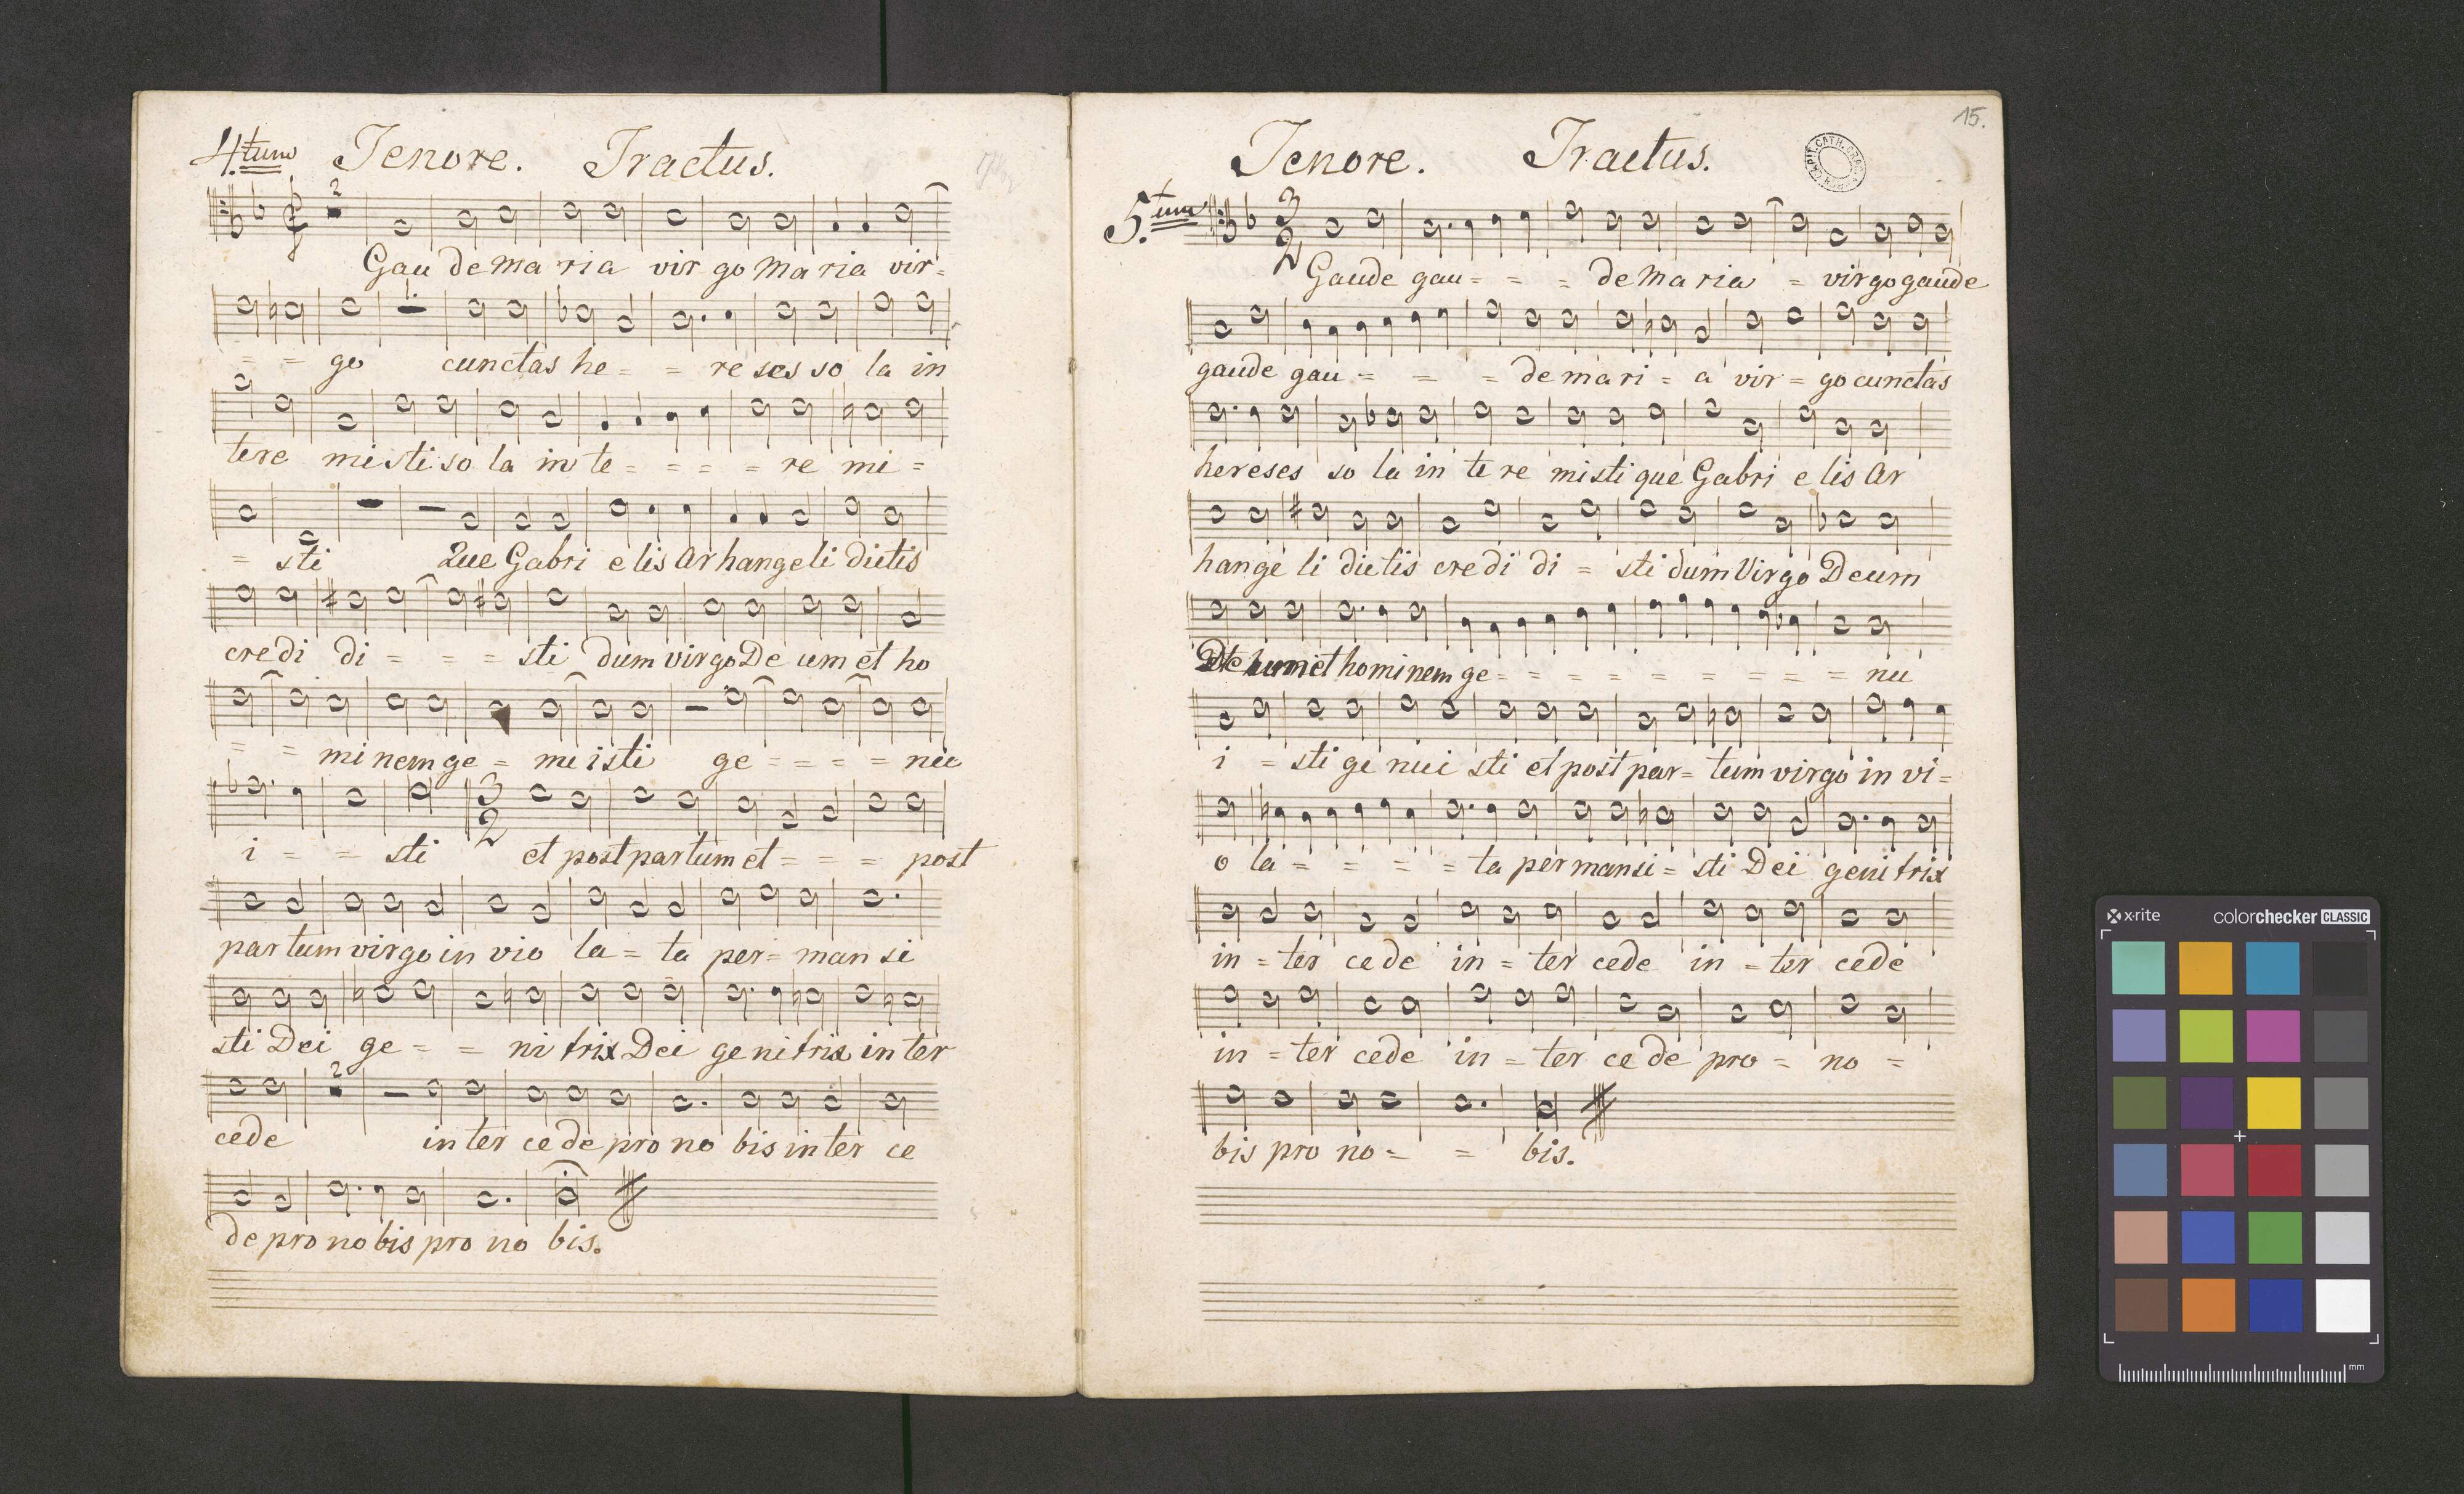 4.tum Tenore. Tractus.
2
Gau de Ma ria vir go Ma ria vir =
= = go cunctas he = = re ses so la in
tere misti so la in te = = = = re mi =
= sti Que Gabri e lis Ar hangeli dictis
cre di di = = = sti dum virgo De um et ho
= = mi nem ge = nu i sti ge = = = = nu
i = = sti 3 2 et post partum et = = = post
par tum virgo in vio la = ta per = man si
sti Dei ge = = ni trix Dei ge ni trix in ter
2
cede in ter ce de pro no bis in ter ce
de pro no bis pro no bis.
15.
Tenore. Tractus.
5.tum 3 2
Gaude gau = = = de Ma ria = virgo gaude
gaude gau = = = de ma ri = a vir = go cunctas
hereses so la in te re misti que Gabri e lis Ar
hange li dictis cre di di = sti dum Virgo Deum
et hominem ge = = = = = = = = nu
i = sti ge nui sti et post par = tum virgo in vi =
o la = = = = ta per mansi = sti Dei geni trix
in = ter cede in = ter cede in = ter cede
in = ter cede in = ter ce de pro = no =
bis pro no = = bis.
x·rite colorchecker CLASSIC
mm